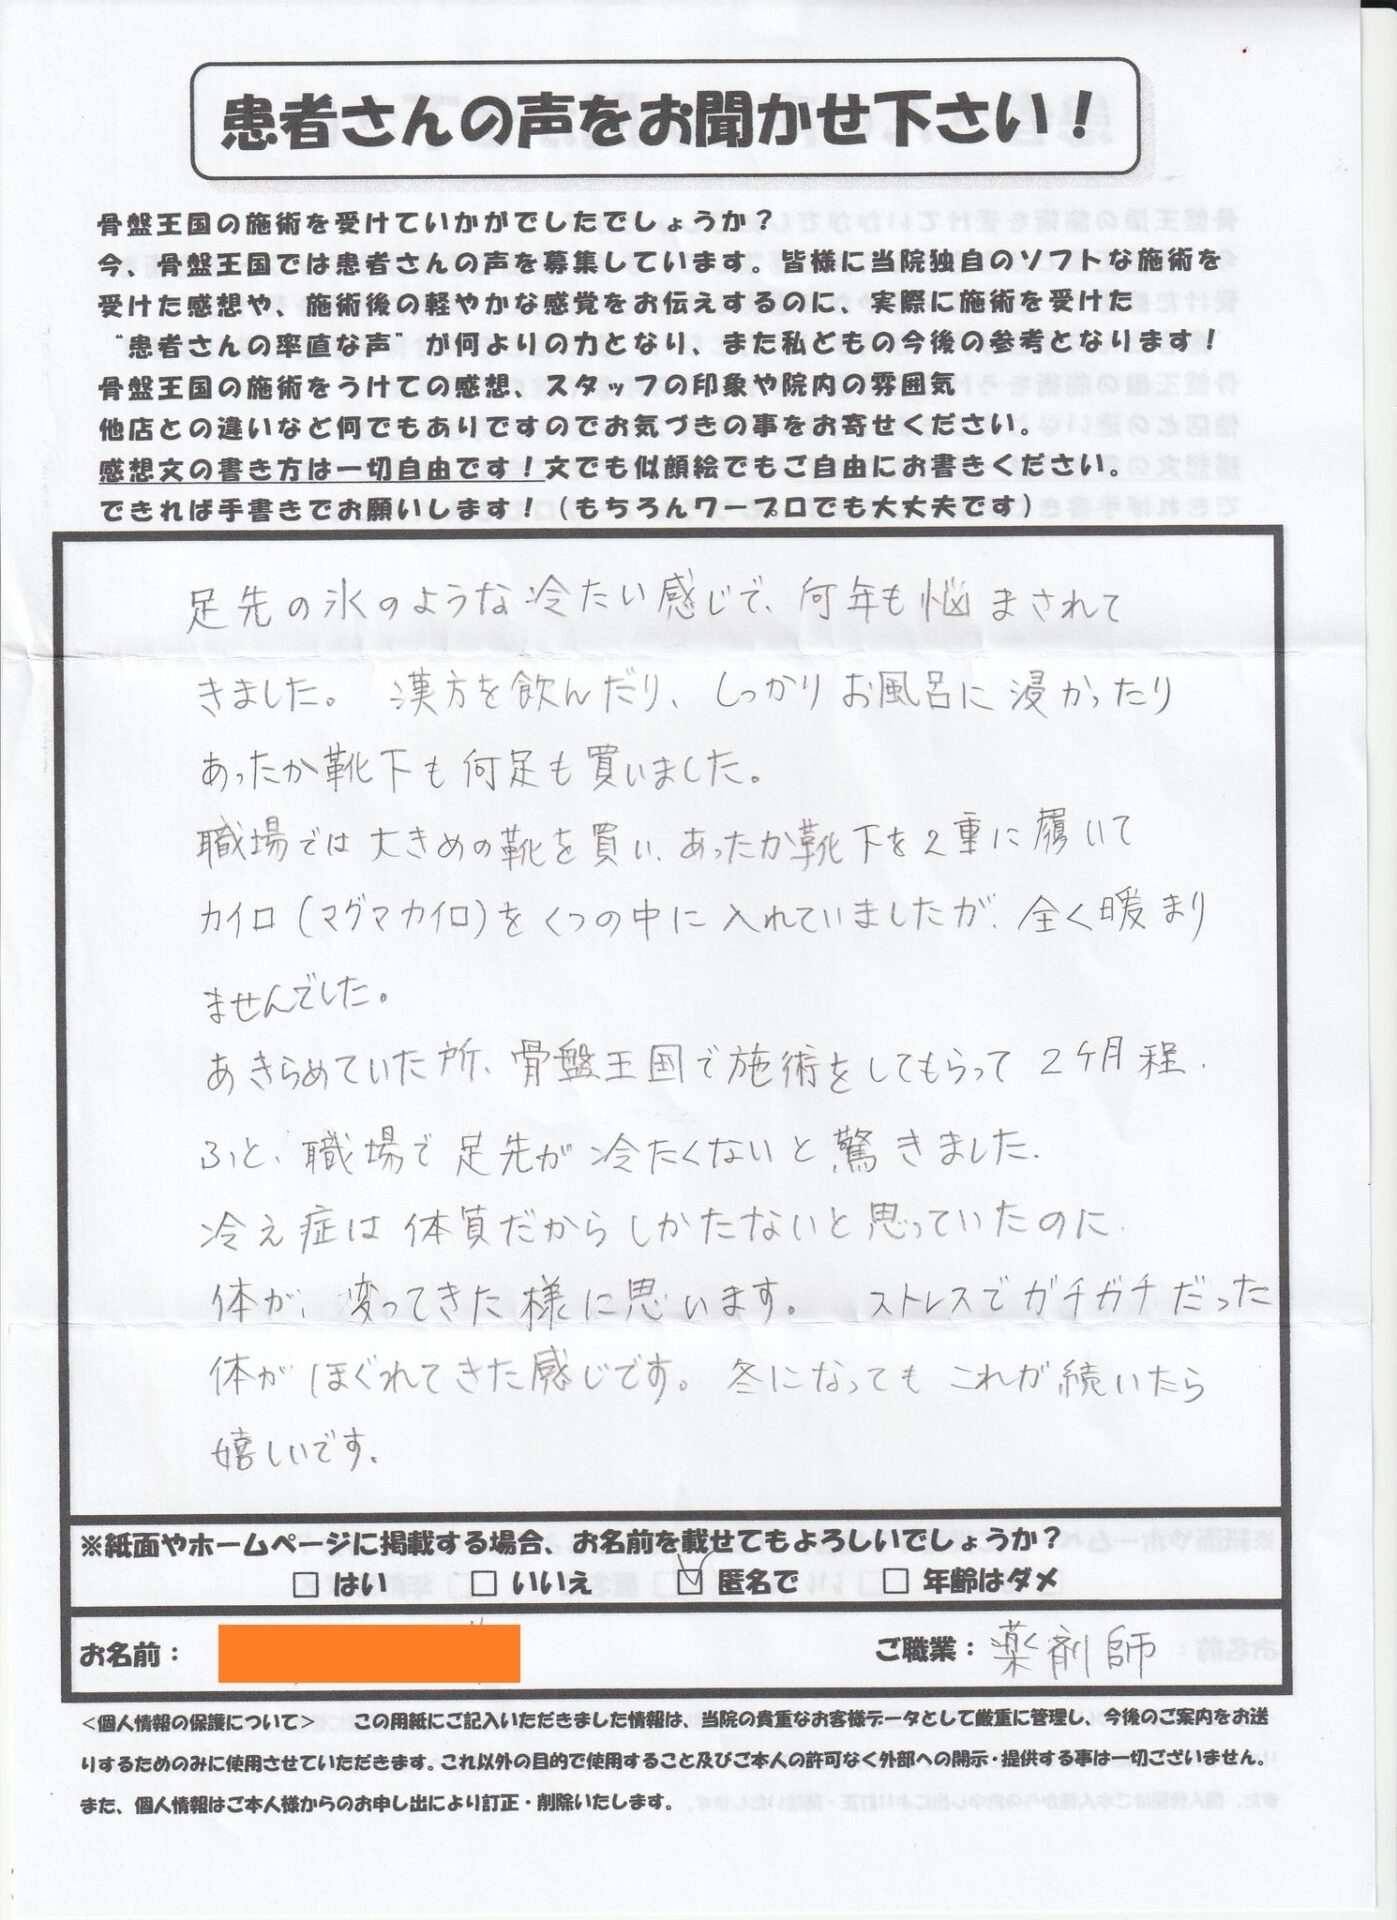 患者さんの声をお聞かせ下さい！
骨盤王国の施術を受けていかがでしたでしょうか？
今、骨盤王国では患者さんの声を募集しています。皆様に当院独自のソフトな施術を
受けた感想や、施術後の軽やかな感覚をお伝えするのに、実際に施術を受けた
“患者さんの率直な声”が何よりの力となり、また私どもの今後の参考となります！
骨盤王国の施術をうけての感想、スタッフの印象や院内の雰囲気
他店との違いなど何でもありですのでお気づきの事をお寄せください。
感想文の書き方は一切自由です！文でも似顔絵でもご自由にお書きください。
できれば手書きでお願いします！（もちろんワープロでも大丈夫です）
足先の氷のような冷たい感じで、何年も悩まされて
きました。 漢方を飲んだり、しっかりお風呂に浸かったり
あったか靴下も何足も買いました。
職場では大きめの靴を買い、あったか靴下を2重に履いて
カイロ（マグマカイロ）をくつの中に入れていましたが、全く暖まり
ませんでした。
あきらめていた所、骨盤王国で施術をしてもらって2ケ月程、
ふと、職場で足先が冷たくないと驚きました。
冷え症は体質だからしかたないと思っていたのに、
体が、変ってきた様に思います。 ストレスでガチガチだった
体がほぐれてきた感じです。冬になってもこれが続いたら
嬉しいです。
※紙面やホームページに掲載する場合、お名前を載せてもよろしいでしょうか？
□ はい □ いいえ ☑ 匿名で □ 年齢はダメ
お名前： ご職業：薬剤師
＜個人情報の保護について＞ この用紙にご記入いただきました情報は、当院の貴重なお客様データとして厳重に管理し、今後のご案内をお送
りするためのみに使用させていただきます。これ以外の目的で使用すること及びご本人の許可なく外部への開示・提供する事は一切ございません。
また、個人情報はご本人様からのお申し出により訂正・削除いたします。